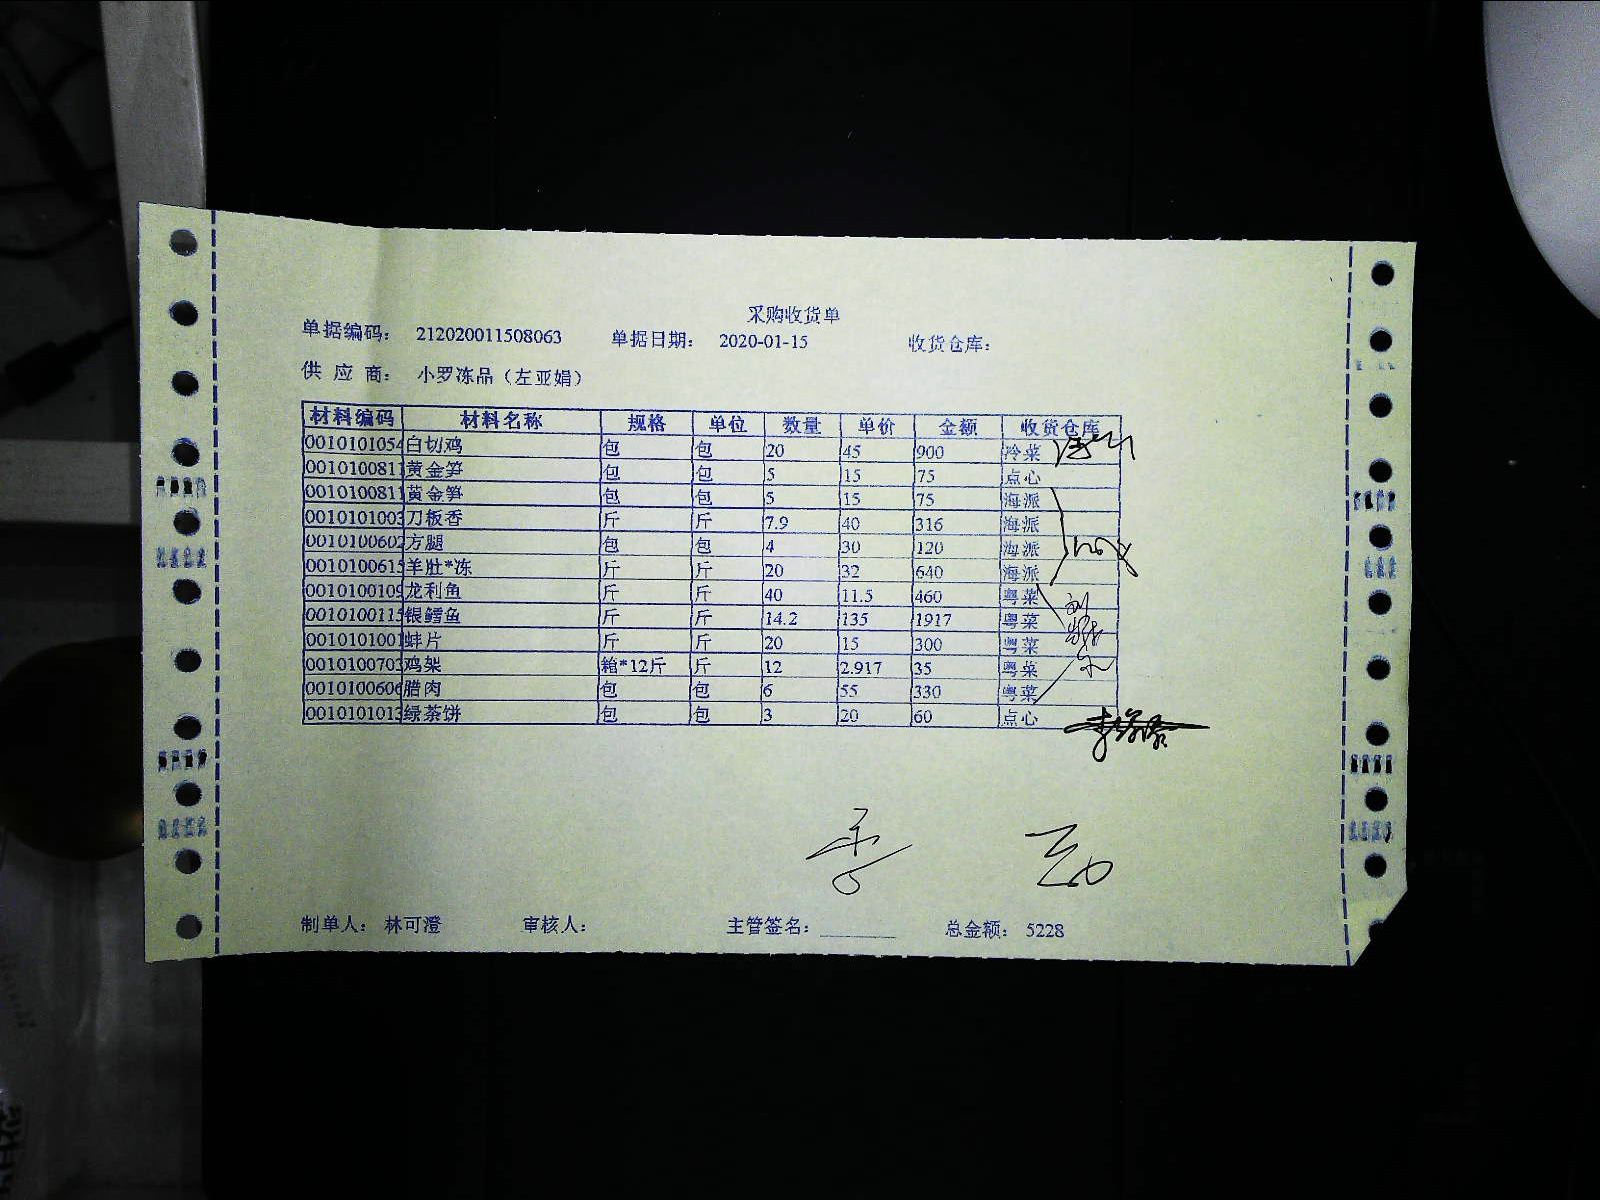 采购收货单
单据编码： 212020011508063 单据日期： 2020-01-15 收货仓库：
供 应 商： 小罗冻品（左亚娟）
材料编码 材料名称 规格 单位 数量 单价 金额 收货仓库
0010101054 白切鸡 包 包 20 45 900 冷菜
0010100811 黄金笋 包 包 5 15 75 点心
0010100811 黄金笋 包 包 5 15 75 海派
0010101003 刀板香 斤 斤 7.9 40 316 海派
0010100602 方腿 包 包 4 30 120 海派
0010100615 羊肚*冻 斤 斤 20 32 640 海派
0010100109 龙利鱼 斤 斤 40 11.5 460 粤菜
0010100115 银鳕鱼 斤 斤 14.2 135 1917 粤菜
0010101001 蚌片 斤 斤 20 15 300 粤菜
0010100703 鸡架 箱*12斤 斤 12 2.917 35 粤菜
0010100606 腊肉 包 包 6 55 330 粤菜
0010101013 绿茶饼 包 包 3 20 60 点心
制单人： 林可澄 审核人： 主管签名： 总金额： 5228